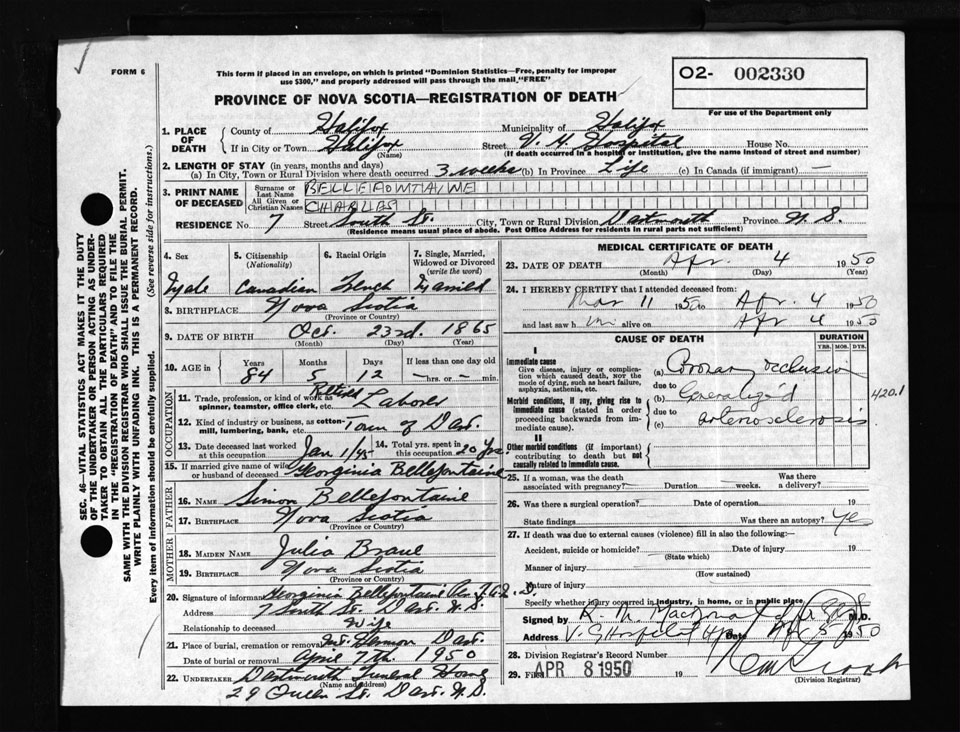 FORM 6
This form if placed in an envelope, on which is printed "Dominion Statistics—Free, penalty for improper
use $300," and properly addressed will pass through the mail, "FREE"
O2- 002330
For use of the Department only
PROVINCE OF NOVA SCOTIA—REGISTRATION OF DEATH
SEC. 46—VITAL STATISTICS ACT MAKES IT THE DUTY
OF THE UNDERTAKER OR PERSON ACTING AS UNDER-
TAKER TO OBTAIN ALL THE PARTICULARS REQUIRED
IN THE "REGISTRATION OF DEATH" AND TO FILE THE
SAME WITH THE DIVISION REGISTRAR WHO SHALL ISSUE THE BURIAL PERMIT.
WRITE PLAINLY WITH UNFADING INK. THIS IS A PERMANENT RECORD.
Every item of information should be carefully supplied. (See reverse side for instructions.)
1. PLACE OF DEATH
County of Halifax Municipality of Halifax
If in City or Town Halifax Street V. G. Hospital House No.
(Name) (If death occurred in a hospital or institution, give the name instead of street and number)
2. LENGTH OF STAY (in years, months and days)
(a) In City, Town or Rural Division where death occurred 3 weeks (b) In Province Life (c) In Canada (if immigrant) —
3. PRINT NAME OF DECEASED
Surname or Last Name BELLEFONTAINE
All Given or Christian Names CHARLES
RESIDENCE No. 7 Street South St. City, Town or Rural Division Dartmouth Province N.S.
(Residence means usual place of abode. Post Office Address for residents in rural parts not sufficient)
4. Sex
Male
5. Citizenship (Nationality)
Canadian
6. Racial Origin
French
7. Single, Married, Widowed or Divorced (write the word)
Married
8. BIRTHPLACE Nova Scotia
(Province or Country)
9. DATE OF BIRTH Oct. 23rd. 1865
(Month) (Day) (Year)
10. AGE in Years Months Days If less than one day old
84 5 12 — hrs. or — min.
OCCUPATION
11. Trade, profession, or kind of work as spinner, teamster, office clerk, etc. Retired Laborer
12. Kind of industry or business, as cotton-mill, lumbering, bank, etc. Town of Dart.
13. Date deceased last worked at this occupation Jan 1/45
14. Total yrs. spent in this occupation 20 yrs
15. If married give name of wife or husband of deceased Georginia Bellefontaine
FATHER
16. NAME Simon Bellefontaine
17. BIRTHPLACE Nova Scotia
(Province or Country)
MOTHER
18. MAIDEN NAME Julia
19. BIRTHPLACE Nova Scotia
(Province or Country)
20. Signature of informant Georginia Bellefontaine
Address 7 South St. Dart. N.S.
Relationship to deceased Wife
21. Place of burial, cremation or removal Mt. Hermon Dart.
Date of burial or removal April 7th. 1950
22. UNDERTAKER Dartmouth Funeral Home
(Name and Address)
29 Queen St. Dart. N.S.
MEDICAL CERTIFICATE OF DEATH
23. DATE OF DEATH Apr. 4 1950
(Month) (Day) (Year)
24. I HEREBY CERTIFY that I attended deceased from:
Mar 11 1950 to Apr. 4 1950
and last saw him alive on Apr 4 1950
CAUSE OF DEATH
DURATION
YRS. MOS. DYS.
I
Immediate cause
Give disease, injury or complication which caused death, Nor the mode of dying, such as heart failure, asphyxia, asthenia, etc.
Morbid conditions, if any, giving rise to immediate cause (stated in order proceeding backwards from immediate cause).
II
Other morbid conditions (if important) contributing to death but not causally related to immediate cause.
(a) Coronary occlusion
due to
(b) Generalized
due to
(c) arteriosclerosis
420.1
25. If a woman, was the death associated with pregnancy? Duration weeks. Was there a delivery?
26. Was there a surgical operation? Date of operation 19
State findings Was there an autopsy? Yes
27. If death was due to external causes (violence) fill in also the following:—
Accident, suicide or homicide? Date of injury 19
(State which)
Manner of injury
(How sustained)
Nature of injury
Specify whether injury occurred in industry, in home, or in public place.
Signed by M.D.
Address V. G. Hospital Date Apr 5 1950
28. Division Registrar's Record Number
29. Filed APR 8 1950 19
(Division Registrar)